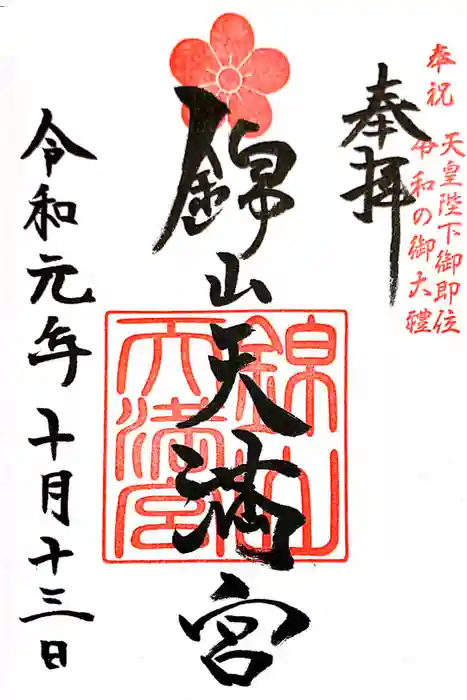 奉祝 天皇陛下御即位
令和の御大禮
奉拝
錦山天満宮
錦山
天満宮
令和元年十月十三日